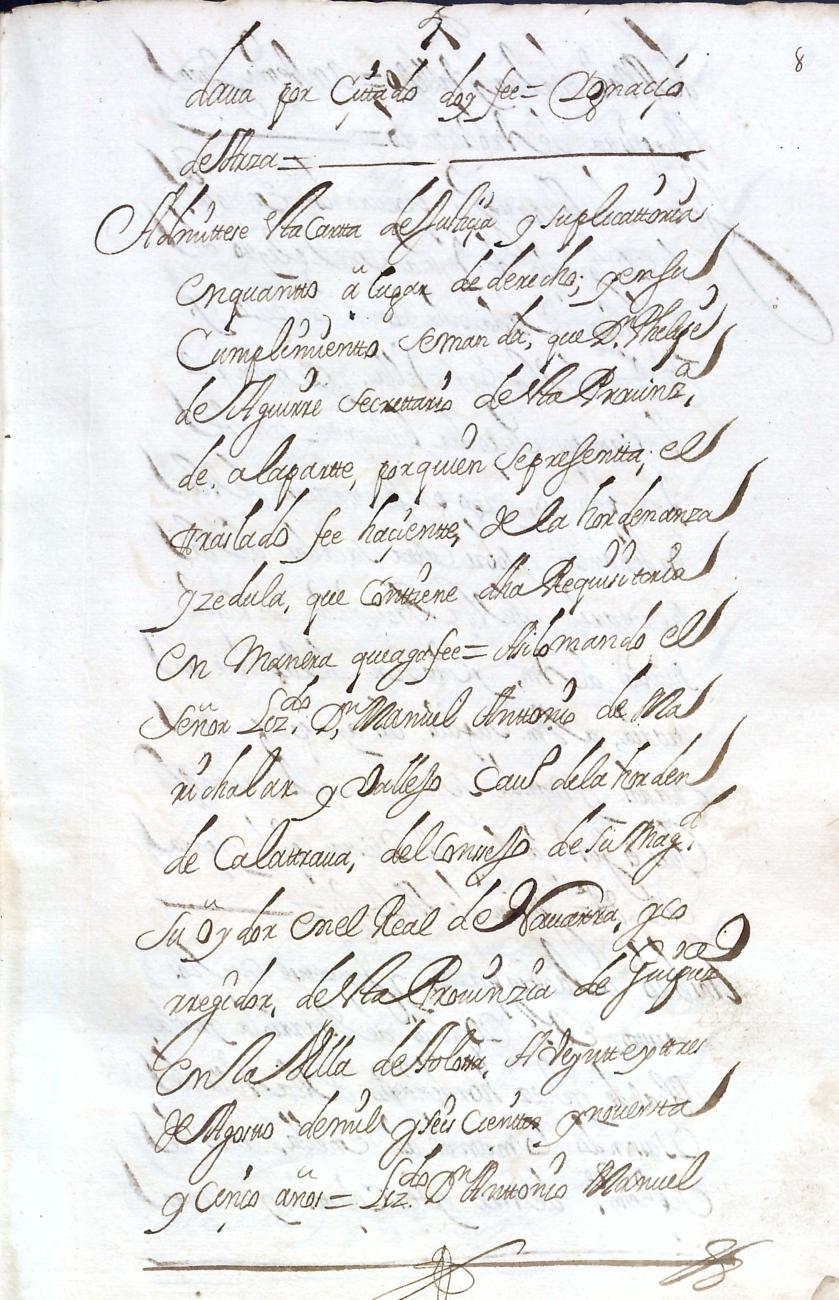 8
daua por Cittado doy fee= Ignacio
de Arza=
Admittese esta Carta de Justiçia y suplicattoria
enquantto a lugar de derecho; y en su
Cumplimientto se manda, que Dn Phelipe
de Aguirre Secrettario de esta Prouinza,
de, a la partte, por quien se presentta, el
ttraslado fee haçientte, de la hordenanza
y zedula, que Conttiene dha Requisitoria
en Manera que aga fee= Asilo mando el
Señor Lizdo. Dn Manuel Anttonio de Ma
richalar y Vallejo Cauº de la horden
de Calattraua, del Consejo de su Magd.
su oydor en el Real de Nauarra, y co
rregidor, de esta Prouinzia de Guipuzca
En la Villa de Tolosa, A Veyntte y tres
de Agosto de mil y seis Cienttos y nouentta
y Cinco años= Lizdo. Dn Anttonio Manuel